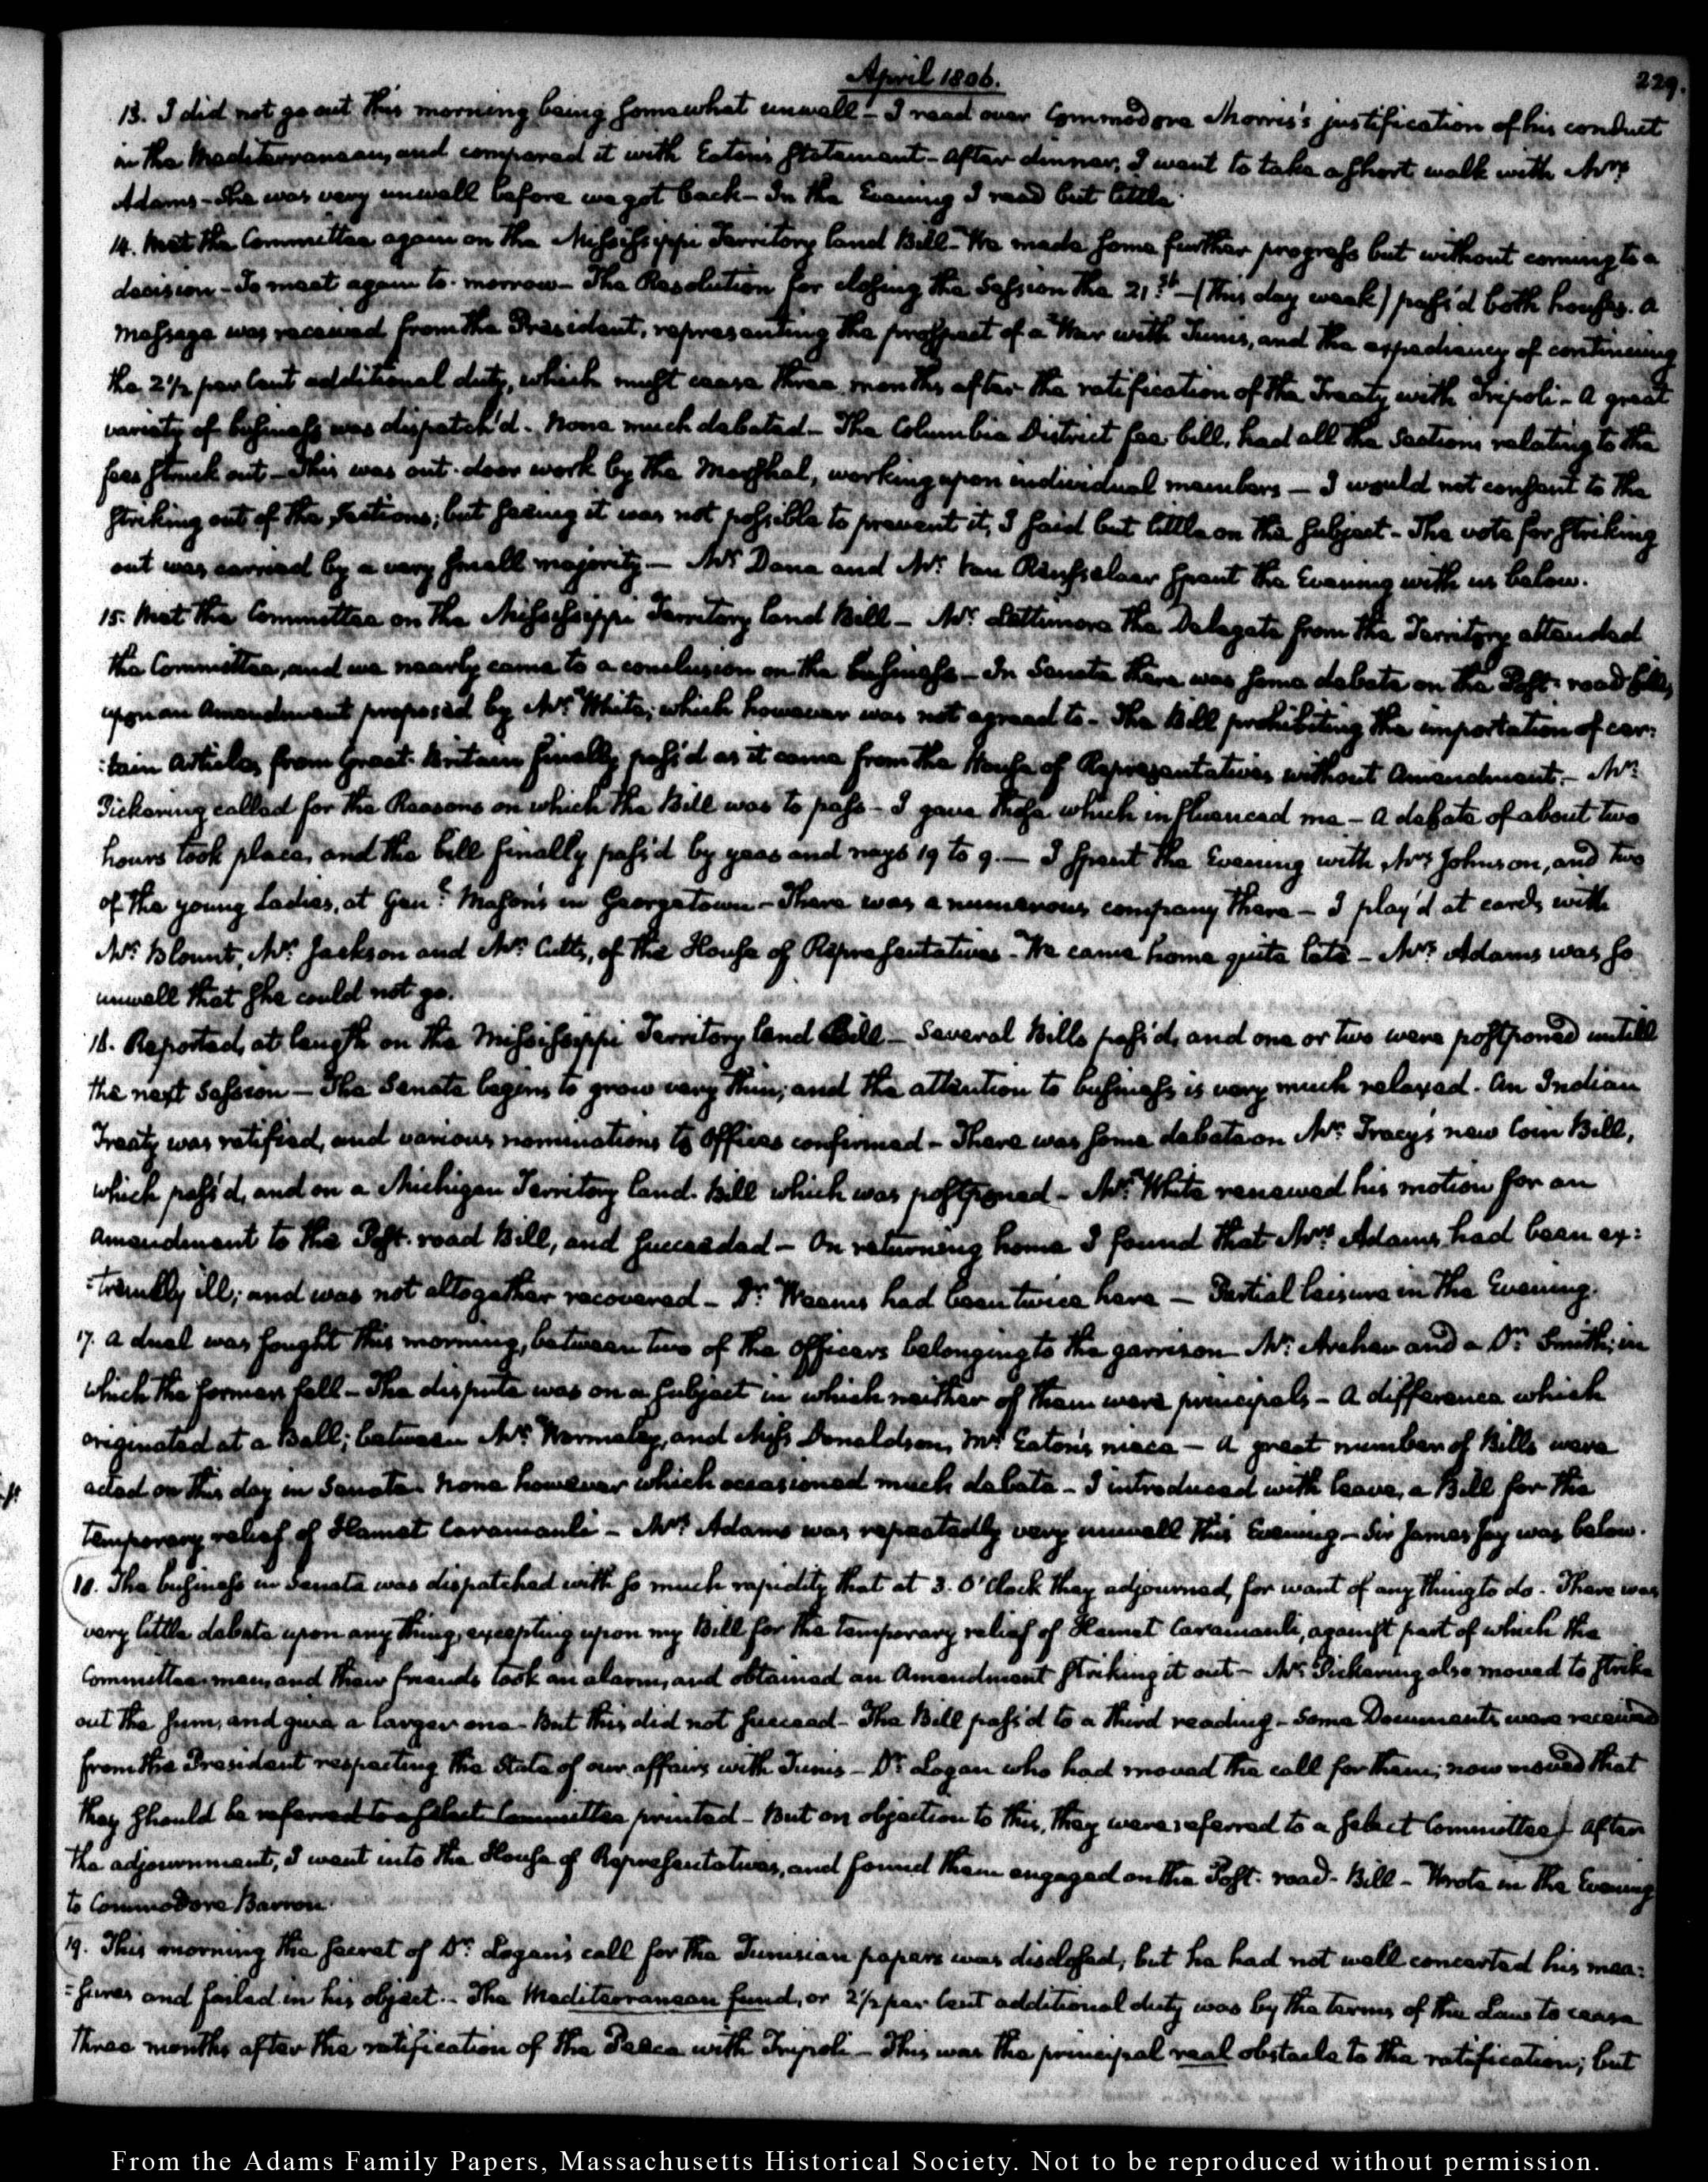 April 1806.
229.
13. I did not go out this morning being somewhat unwell - I read over Commodore Morris's justification of his conduct
in the Mediterranean, and compared it with Eaton's statement - After dinner, I went to take a short walk with Mrs
Adams - She was very unwell before we got back - In the Evening I read but little.
14. Met the Committee again on the Mississippi Territory land Bill - We made some further progress but without coming to a
decision - To meet again to-morrow - The Resolution for closing the Session the 21st - (This day week) pass'd both houses. A
Message was received from the President, representing the prospect of a War with Tunis, and the expediency of continuing
the 2 1/2 per Cent additional duty, which must cease three months after the ratification of the Treaty with Tripoli - A great
variety of business was dispatch'd - None much debated - The Columbia District fee bill, had all the Sections relating to the
fees struck out - This was out-door work by the Marshal, working upon individual members - I would not consent to the
striking out of the Sections; but seeing it was not possible to prevent it, I said but little on the subject - The vote for striking
out was carried by a very small majority - Mr Dana and Mr Van Rensselaer spent the Evening with us below.
15. Met the Committee on the Mississippi Territory land Bill - Mr Lattimore the Delegate from the Territory attended
the Committee, and we nearly came to a conclusion on the business - In Senate there was some debate on the Post-road bill,
upon an Amendment proposed by Mr White, which however was not agreed to - The Bill prohibiting the importation of cer:
:tain articles from Great-Britain finally pass'd as it came from the House of Representatives without Amendment - Mr
Pickering called for the Reasons on which the Bill was to pass - I gave those which influenced me - A debate of about two
hours took place, and the bill finally pass'd by yeas and nays 19 to 9 - I spent the Evening with Mrs Johnson, and two
of the young Ladies, at Genl Mason's in Georgetown - There was a numerous company there - I play'd at cards with
Mr Blount, Mr Jackson and Mr Cutts, of the House of Representatives - We came home quite late - Mrs Adams was so
unwell that she could not go.
16. Reported, at length on the Mississippi Territory land Bill - Several Bills pass'd, and one or two were postponed untill
the next Session - The Senate begins to grow very thin, and the attention to business is very much relaxed. An Indian
Treaty was ratified, and various nominations to Offices confirmed - There was some debate on Mr Tracy's new Coin Bill,
which pass'd, and on a Michigan Territory land Bill which was postponed - Mr White renewed his motion for an
amendment to the Post-road Bill, and succeeded - On returning home I found that Mrs Adams had been ex:
:tremely ill; and was not altogether recovered - Dr Weems had been twice here - Partial leisure in the Evening.
17. A duel was fought this morning, between two of the Officers belonging to the garrison - Mr Archer and a Dr Smith; in
which the former fell - The dispute was on a subject in which neither of them were principals - A difference which
originated at a Ball; between Mr Wormeley, and Miss Donaldson, Mr Eaton's niece - A great number of Bills were
acted on this day in Senate - None however which occasioned much debate - I introduced with leave, a Bill for the
temporary relief of Hamet Caramanli - Mrs Adams was repeatedly very unwell this Evening - Sir James Jay was below.
18. The business in Senate was dispatched with so much rapidity that at 3. O'Clock they adjourned, for want of any thing to do. There was
very little debate upon any thing, excepting upon my Bill for the temporary relief of Hamet Caramanli, against part of which the
Committee-men, and their friends took an alarm, and obtained an Amendment striking it out - Mr Pickering also moved to strike
out the sum, and give a larger one - But this did not succeed - The Bill pass'd to a third reading - Some Documents were received
from the President respecting the State of our affairs with Tunis - Dr Logan who had moved the call for them; now moved that
they should be referred to a select Committee printed - But on objection to this, they were referred to a select Committee) After
the adjournment, I went into the House of Representatives, and found them engaged on the Post-road-Bill - Wrote in the Evening
to Commodore Barron.
19. This morning the secret of Dr Logan's call for the Tunisian papers was disclosed, but he had not well concerted his mea:
:sures and failed in his object - The Mediterranean fund, or 2 1/2 per Cent additional duty was by the terms of the Law to cease
three months after the ratification of the Peace with Tripoli - This was the principal real obstacle to the ratification; but
From the Adams Family Papers, Massachusetts Historical Society. Not to be reproduced without permission.